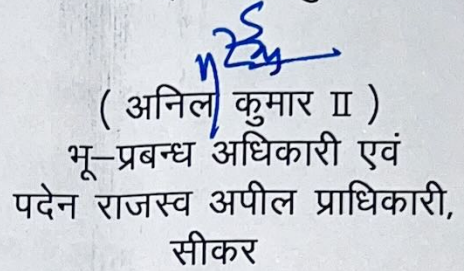 ( अनिल कुमार II )
भू–प्रबन्ध अधिकारी एवं
पदेन राजस्व अपील प्राधिकारी,
सीकर